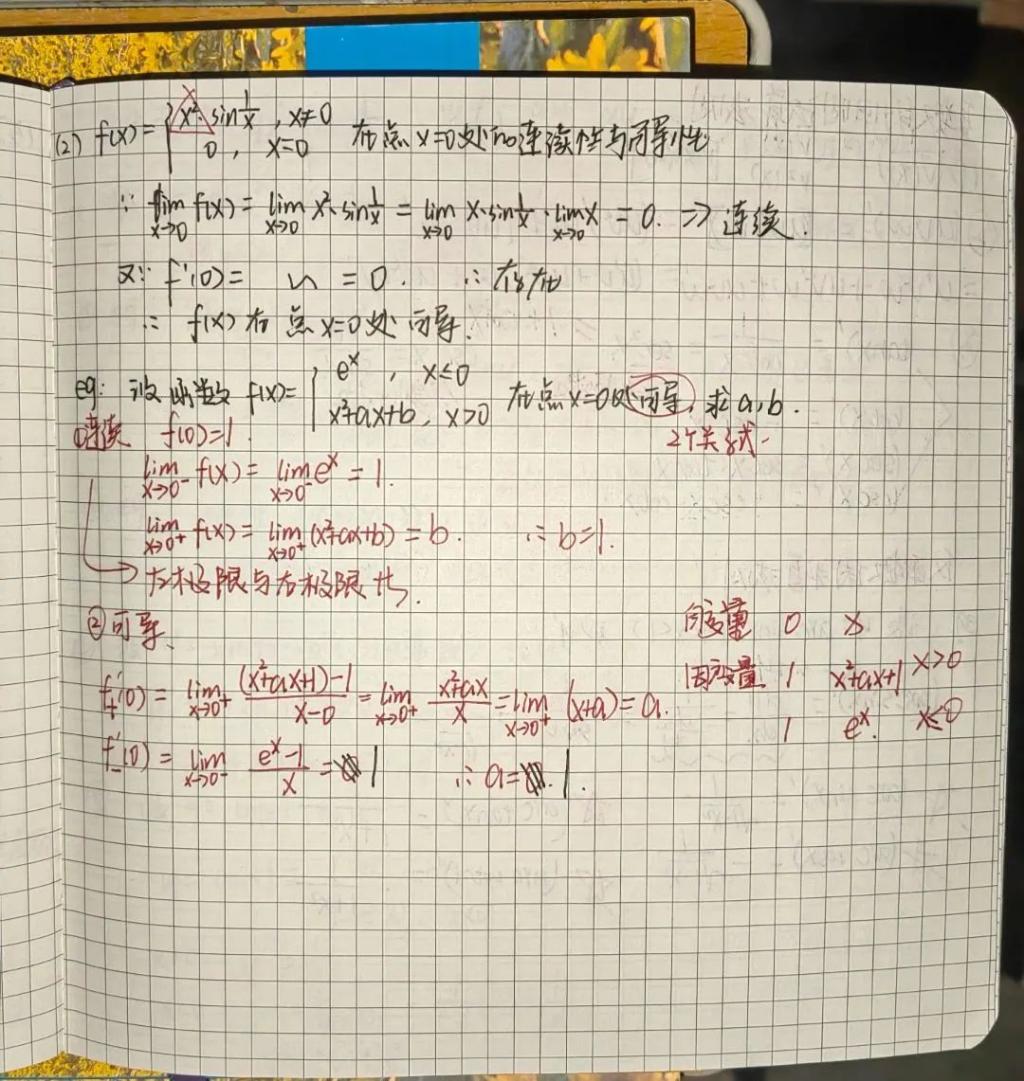 (2) f(x)= { x²·sin 1/x , x≠0
0 , x=0 在点x=0处的连续性与可导性
∵ lim x→0 f(x) = lim x→0 x²·sin 1/x = lim x→0 x·sin 1/x · lim x→0 x = 0. ⇒ 连续.
又∵ f'(0)= = 0. ∴ 存在
∴ f(x)在点x=0处可导.
eg: 设函数 f(x)= { e^x , x≤0
x²+ax+b , x>0 在点x=0处可导, 求a,b.
①连续 f(0)=1.
2个关系式.
lim x→0⁻ f(x) = lim x→0⁻ e^x = 1.
lim x→0⁺ f(x) = lim x→0⁺ (x²+ax+b) = b. ∴ b=1.
→ 左极限与右极限
②可导.
自变量 0 x
f₊'(0) = lim x→0⁺ ((x²+ax+1)-1)/(x-0) = lim x→0⁺ (x²+ax)/x = lim x→0⁺ (x+a) = a.
因变量 1 x²+ax+1 x>0
1 e^x. x≤0
f₋'(0) = lim x→0⁻ (e^x-1)/x = 1 ∴ a= 1.